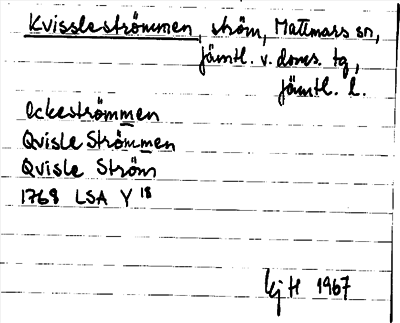 Kvissleströmmen, ström, Mattmars sn,
jämtl. v. doms. tg,
jämtl. l.
Ockeströmmen
Qvisle Strömmen
Qvisle Ström
1768 LSA Y 18
Ej H 1967